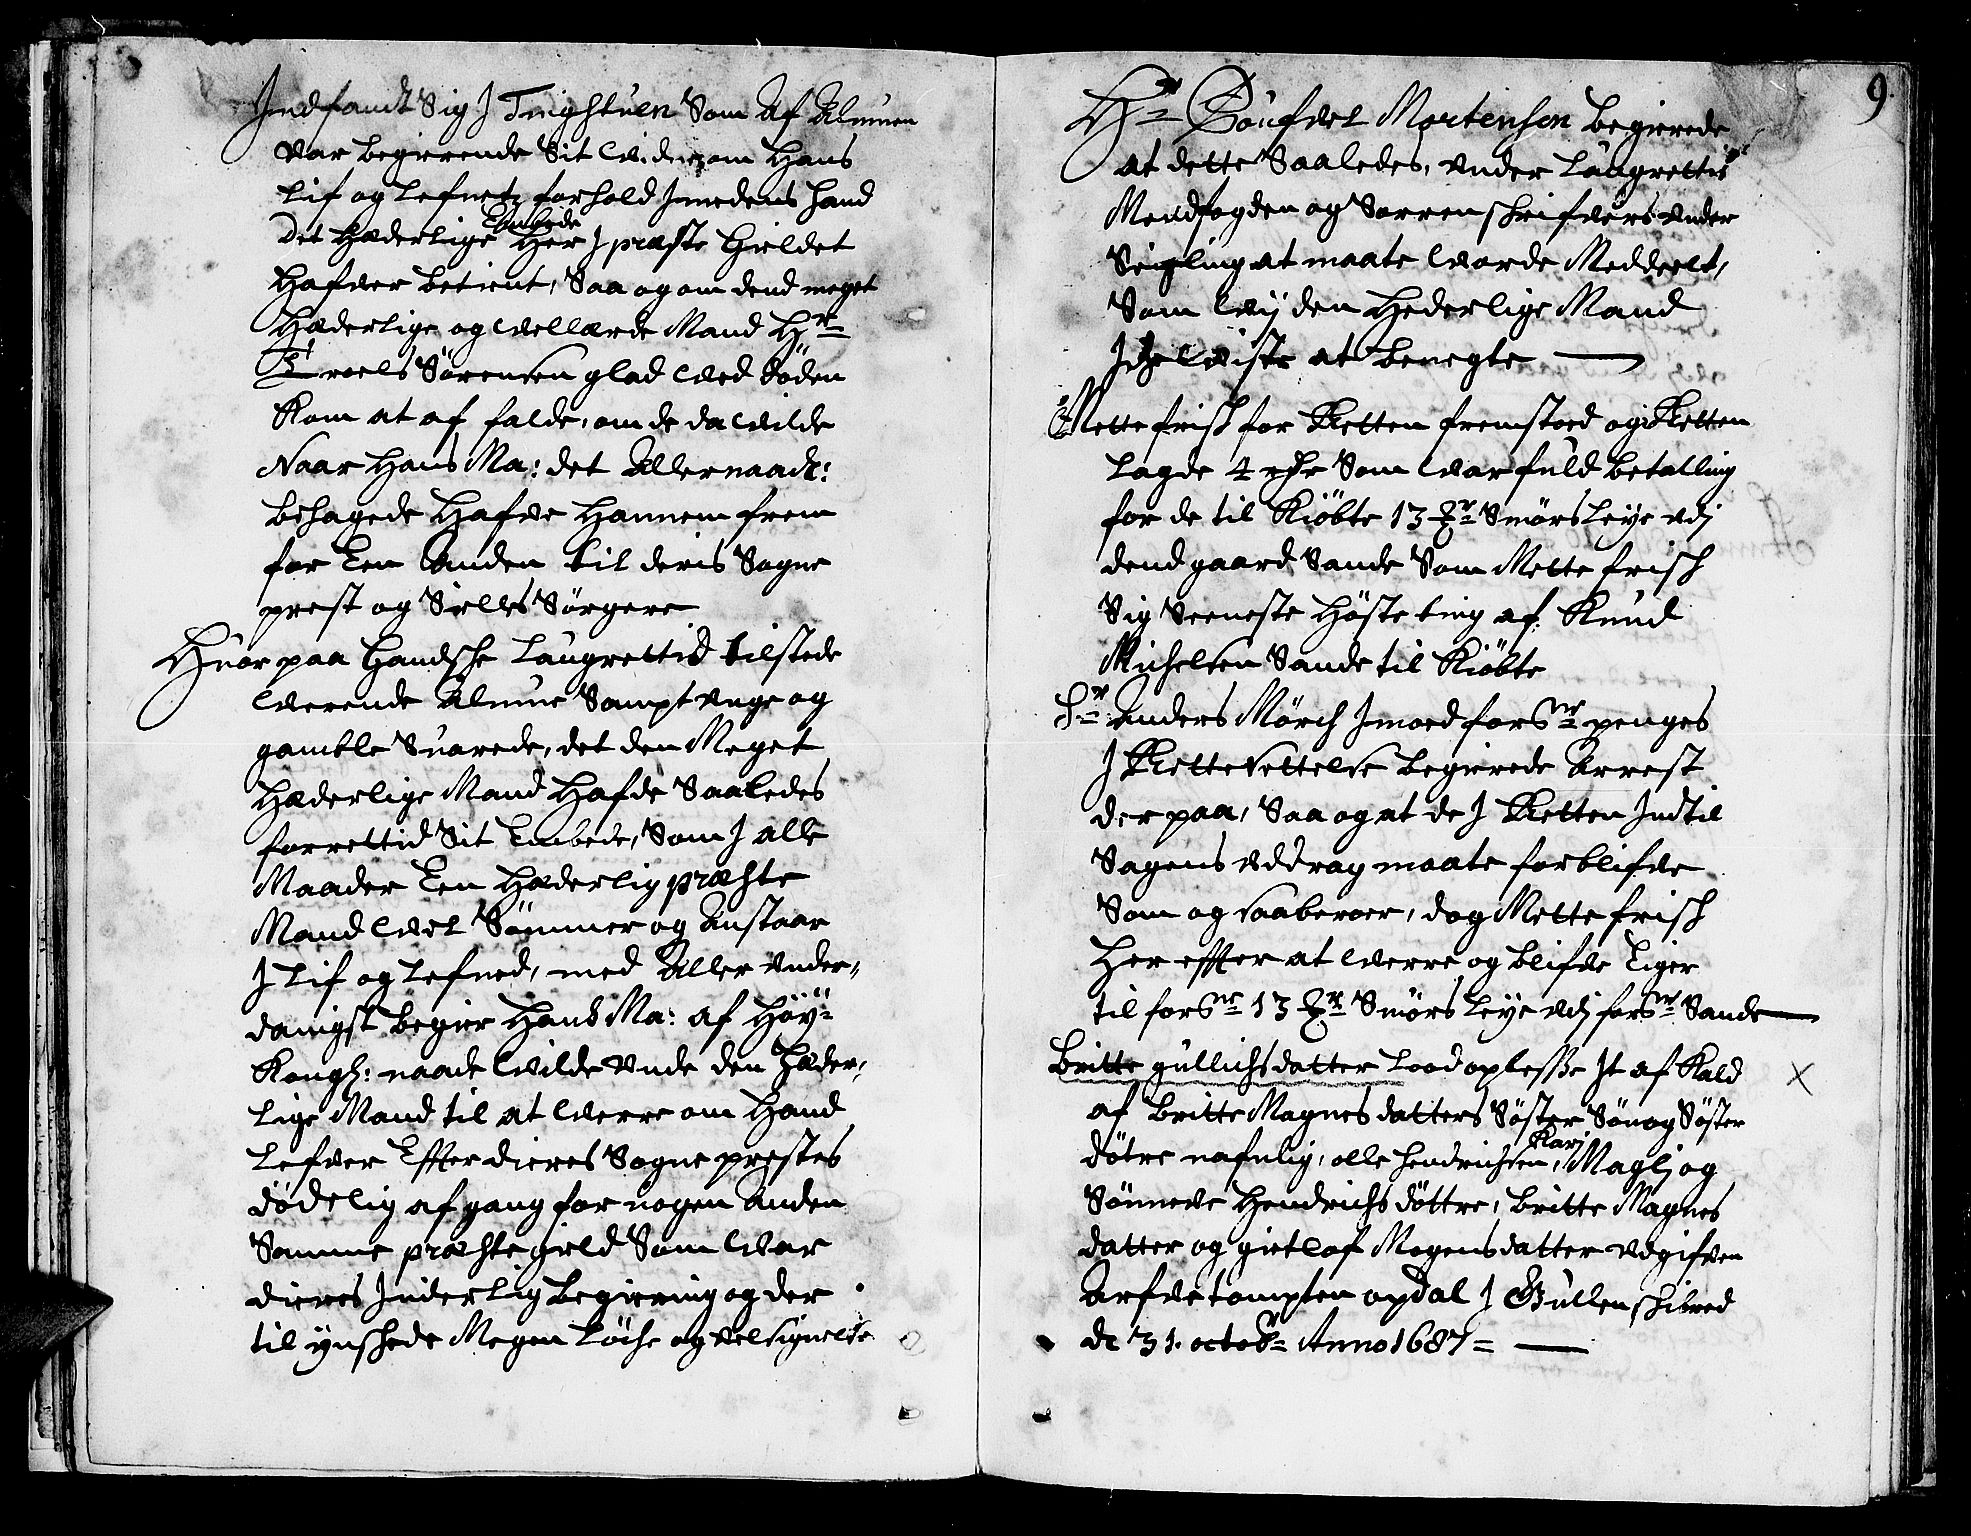 Indfandt Sig J Tingstuen Som Af Almuen
var begierende Sit Widne, om Hans
Lif og Lefnetz forhold Jmedens hand
Det Hæderlige Embede Her J præste Gieldet
Hafver betient, Saa og om dend meget
Hæderlige og Wellærde Mand Hr
Troels Sörensen glad Wed döden
Kom at af falde, om de da Wilde
Naar Hans Ma: det Allernaadr:
behagede Hafve Hannem frem
for Een Anden til deris Sogne
prest og Sielles Sörgere
Huor paa Gandsche Laugrettid tilstede
Werende Almue Sampt unge og
gamble Suarede, det den Meget
Hæderlige Mand Hafde Saaledes
forrettid Sit Embede, Som J alle
Maader Een Hæderlig præste
Mand Well Sömmer og Anstaar
J Lif og Lefned, med Aller under,,
danigst begier Hans Ma: af Höy
Kongl: naade Wilde Unde den Hæder,,
lige Mand til at Werre om Hand
Lefver Effter dieres Sogne prestes
dödelig af gang for nogen Anden
Samme præste gield Som War
dieres Inderlig begiering og der
til ynschede Megen Löche og velsignelse
9.
Hr Poufvel Mortensen begierede
at dette Saaledes, under Laugrettis
Mend fogden og Sorrenschrifvers under
Seigling at maate Worde Meddeelt,
Som Wij den Hederlige Mand
Iche Viste at benegte
Mette frisch for Retten fremstoed og i Retten
Lagde 4 rdr Som War fuld betalling
for de til Kiöbte 13 mr Smörs Leye udj
dend gaard Sande Som Mette frisch
Sig Seeneste Höste ting af Knud
Michelsen Sande til Kiöbte
Sr Anders Mörch Jmod forsne penges
J Rettesettelse begierede Arrest
der paa, Saa og at de J Retten Indtil
Sagens uddrag maate forblifve
Som og saaberoer, dog Mette frisch
Her effter at Werre og blifve Eiger
til forsne 13 mr Smörs Leye udj forsne Sande
Britte gullichsdatter Lood oplesse It af Kald
af Britte Magnesdatters Söster Sön og Söster
dötre nafnlig, olle Hendrichsen, Karj Maglj og
Sönneve Hendrichsdöttre, Britte Magnes
datter og giertlof Mogensdatter udgifven
Arfvetompten opdal J Gullen schibred
de 31. octobr Anno 1687